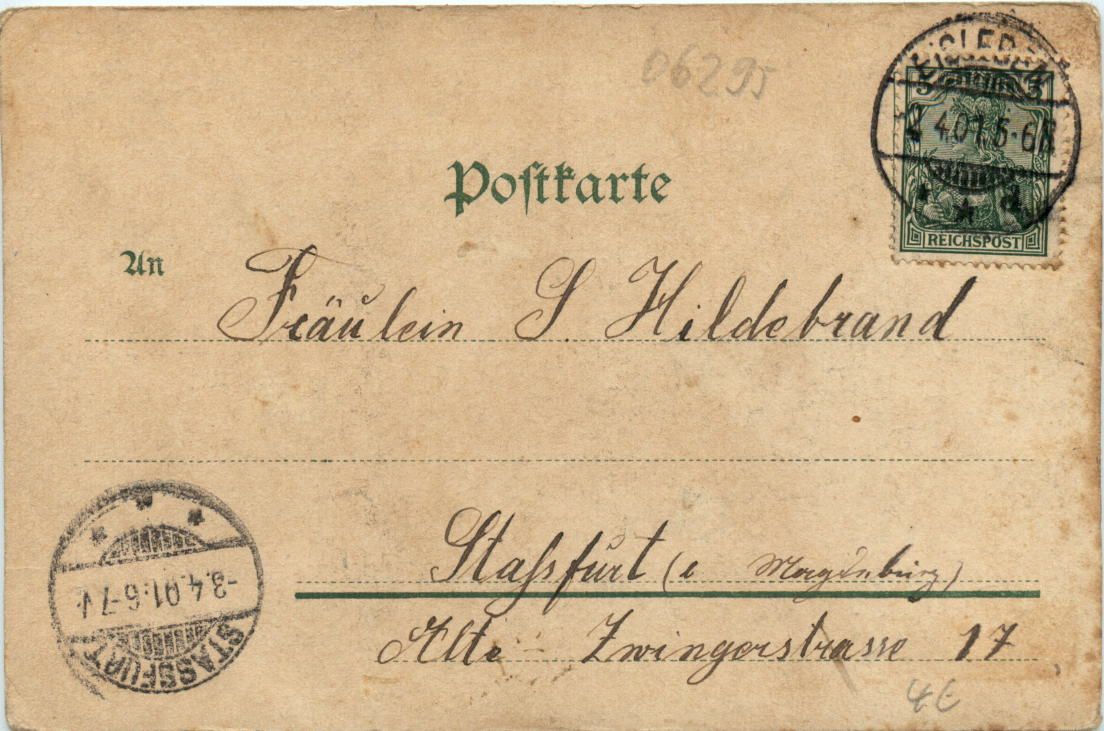 06295
EISLEBEN
5 5
4.01.5-6N.
* * d
REICHSPOST
Postkarte
An
Fräulein S Hildebrand
Stassfurt (i Magdeburg)
Alte Zwingerstrasse 17
-3.4.01.6-7V.
STASSFURT
4€